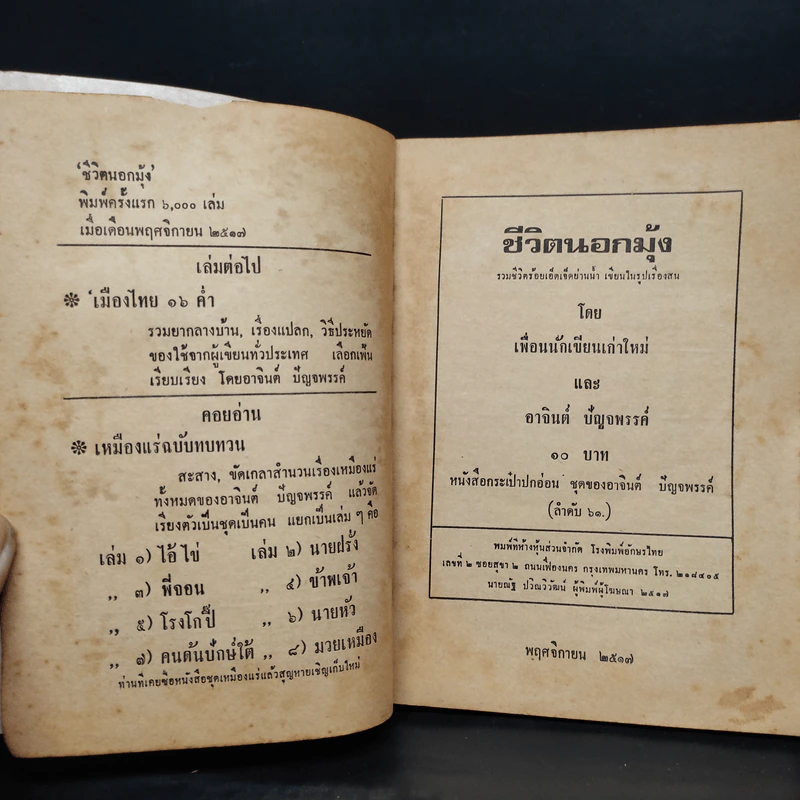 'ชีวิตนอกมุ้ง'
พิมพ์ครั้งแรก ๖,๐๐๐ เล่ม
เมื่อเดือนพฤศจิกายน ๒๕๑๗
เล่มต่อไป
❊ 'เมืองไทย ๑๖ ค่ำ
รวมยากลางบ้าน, เรื่องแปลก, วิธีประหยัด
ของใช้จากผู้เขียนทั่วประเทศ เลือกเฟ้น
เรียบเรียง โดยอาจินต์ ปัญจพรรค์
คอยอ่าน
❊ เหมืองแร่ฉบับทบทวน
สะสาง, ขัดเกลาสำนวนเรื่องเหมืองแร่
ทั้งหมดของอาจินต์ ปัญจพรรค์ แล้วจัด
เรียงตัวเป็นชุดเป็นคน แยกเป็นเล่ม ๆ คือ
เล่ม ๑) ไอ้ไข่ เล่ม ๒) นายฝรั่ง
,, ๓) พี่จอน ,, ๔) ข้าพเจ้า
,, ๕) โรงโกปี๊ ,, ๖) นายหัว
,, ๗) คนดันปักษ์ใต้ ,, ๘) มวยเหมือง
ท่านที่เคยซื้อหนังสือชุดเหมืองแร่แล้วสูญหายเชิญเก็บใหม่
ชีวิตนอกมุ้ง
รวมชีวิตร้อยเอ็ดเจ็ดย่านน้ำ เขียนในรูปเรื่องสั้น
โดย
เพื่อนนักเขียนเก่าใหม่
และ
อาจินต์ ปัญจพรรค์
๑๐ บาท
หนังสือกระเป๋าปกอ่อน ชุดของอาจินต์ ปัญจพรรค์
(ลำดับ ๖๑.)
พิมพ์ที่ห้างหุ้นส่วนจำกัด โรงพิมพ์อักษรไทย
เลขที่ ๒ ซอยสุขา ๒ ถนนเฟื่องนคร กรุงเทพมหานคร โทร. ๒๑๘๔๐๕
นายณัฐ ปวิณวิวัฒน์ ผู้พิมพ์ผู้โฆษณา ๒๕๑๗
พฤศจิกายน ๒๕๑๗